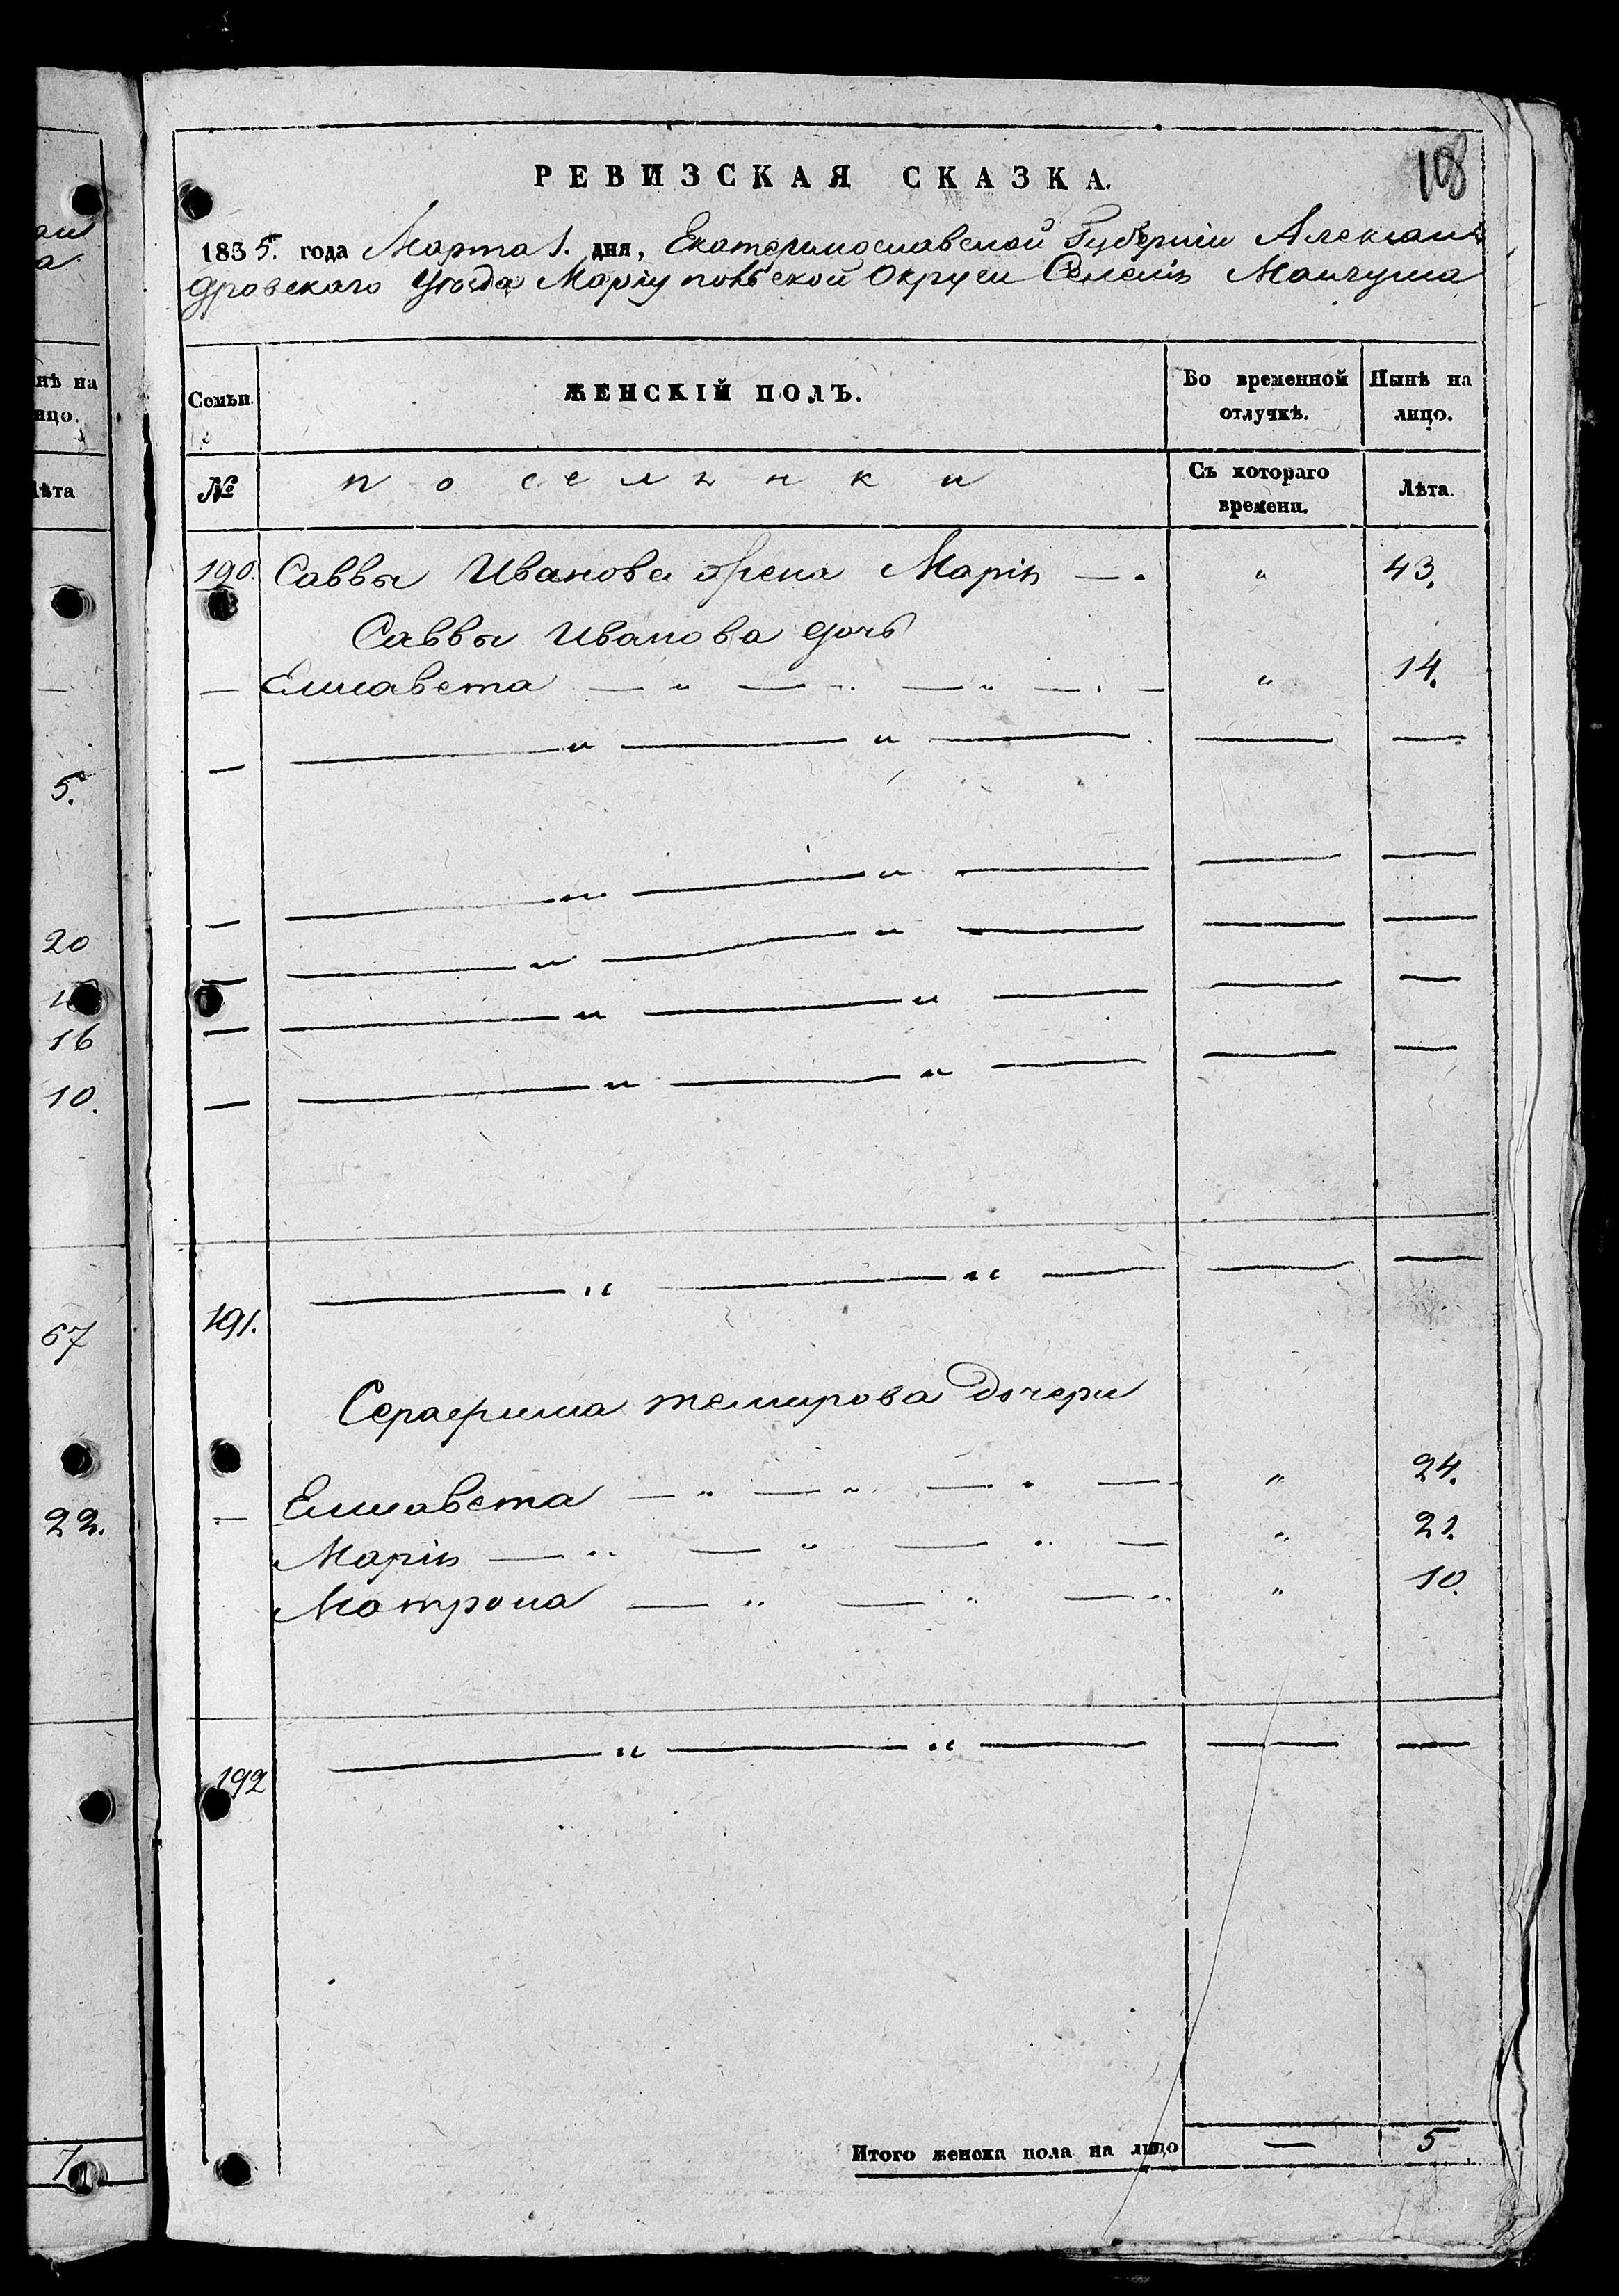 108
РЕВИЗСКАЯ СКАЗКА.
1835. года Марта 1. дня, Екатеринославской Губерніи Алексан
дровскаго Уѣзда Маріупольской Округи Селенія Мангуша
Семьи. ЖЕНСКІЙ ПОЛЪ. Во временной отлучкѣ. Нынѣ на лицо.
№ поселянки Съ котораго времени. Лѣта.
190. Саввы Иванова жена Марія — . „ 43.
Саввы Иванова дочь
— Елисавета — „ — „ — „ — . — „ 14.
— — „ — „ — — —
— — „ — „ — — —
— — „ — „ — — —
— — „ — „ — — —
— — „ — „ — — —
191. — „ — „ — — —
Серафима темирова дочери
— Елисавета — „ — „ — „ — „ 24.
Марія — „ — „ — „ — „ 21.
Матрона — „ — „ — „ „ 10.
192 — „ — „ — — —
Итого женска пола на лицо — 5
нѣ на
ицо.
Лѣта
—
5.
20
16
10.
67
22.
7